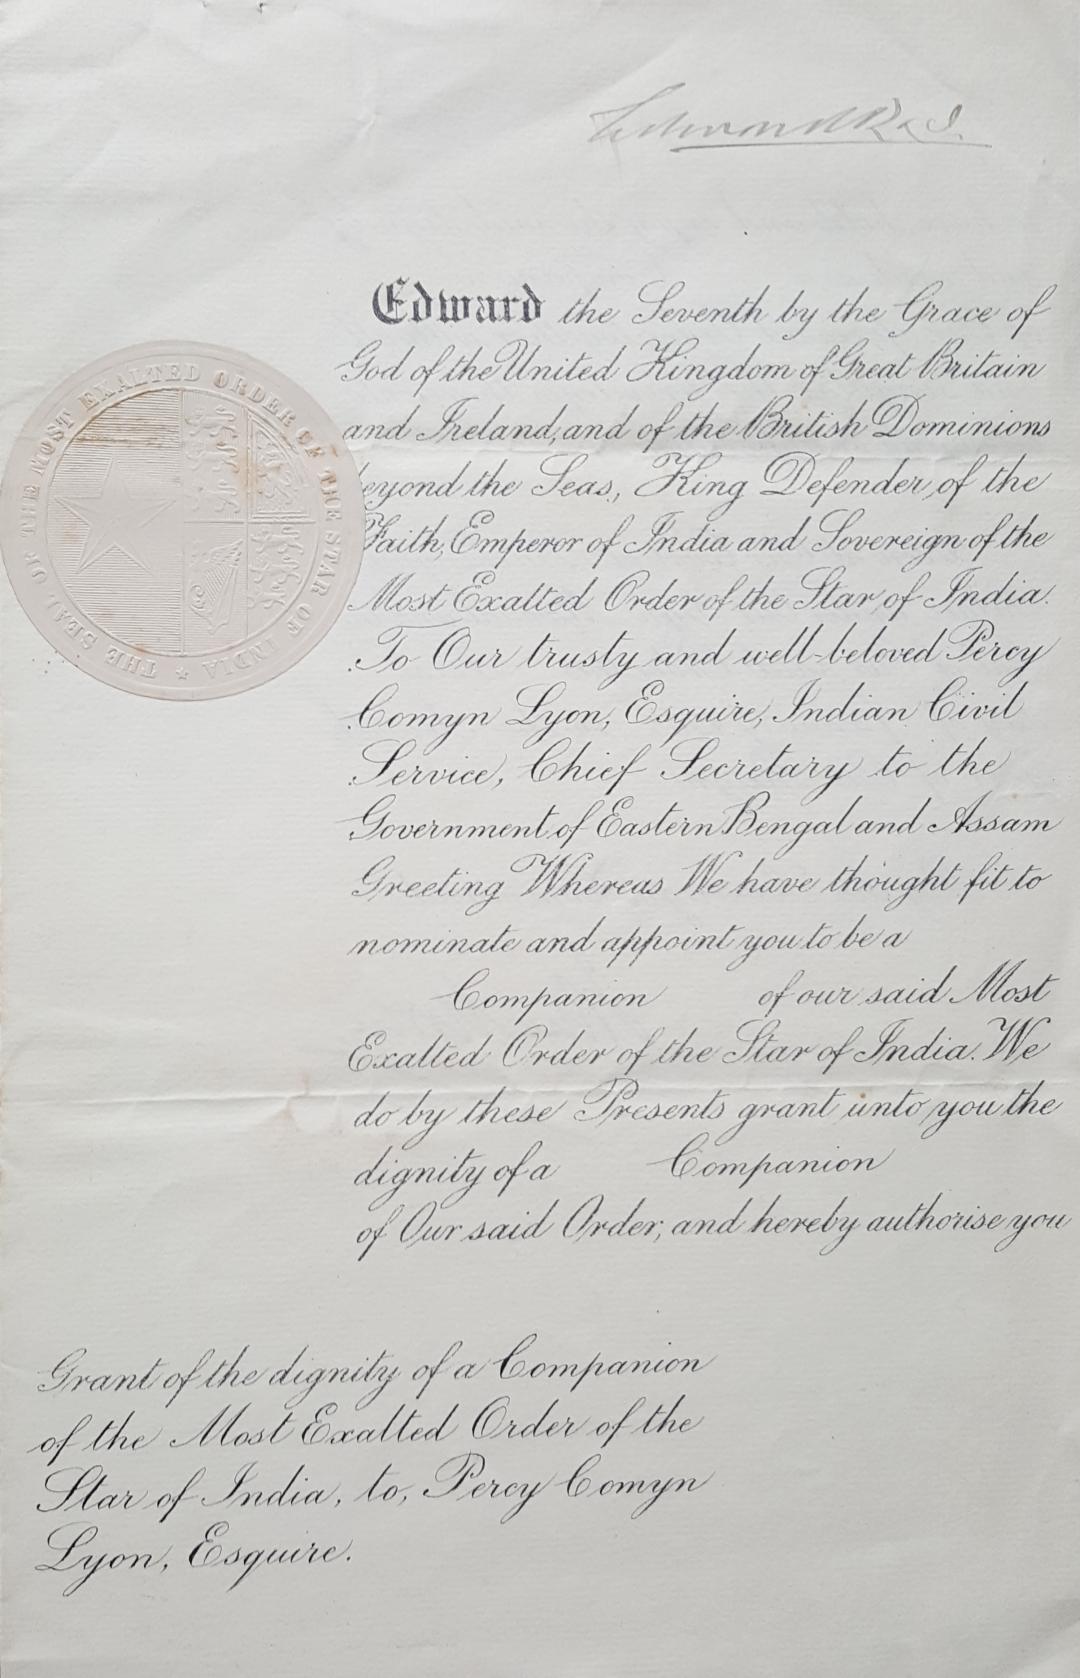 Edward R & I.
Edward the Seventh by the Grace of
God of the United Kingdom of Great Britain
and Ireland, and of the British Dominions
beyond the Seas, King Defender of the
Faith, Emperor of India and Sovereign of the
Most Exalted Order of the Star of India.
To Our trusty and well-beloved Percy
Comyn Lyon, Esquire, Indian Civil
Service, Chief Secretary to the
Government of Eastern Bengal and Assam
Greeting Whereas We have thought fit to
nominate and appoint you to be a
Companion of our said Most
Exalted Order of the Star of India. We
do by these Presents grant unto you the
dignity of a Companion
of Our said Order, and hereby authorise you
THE SEAL OF THE MOST EXALTED ORDER OF THE STAR OF INDIA
Grant of the dignity of a Companion
of the Most Exalted Order of the
Star of India, to, Percy Comyn
Lyon, Esquire.